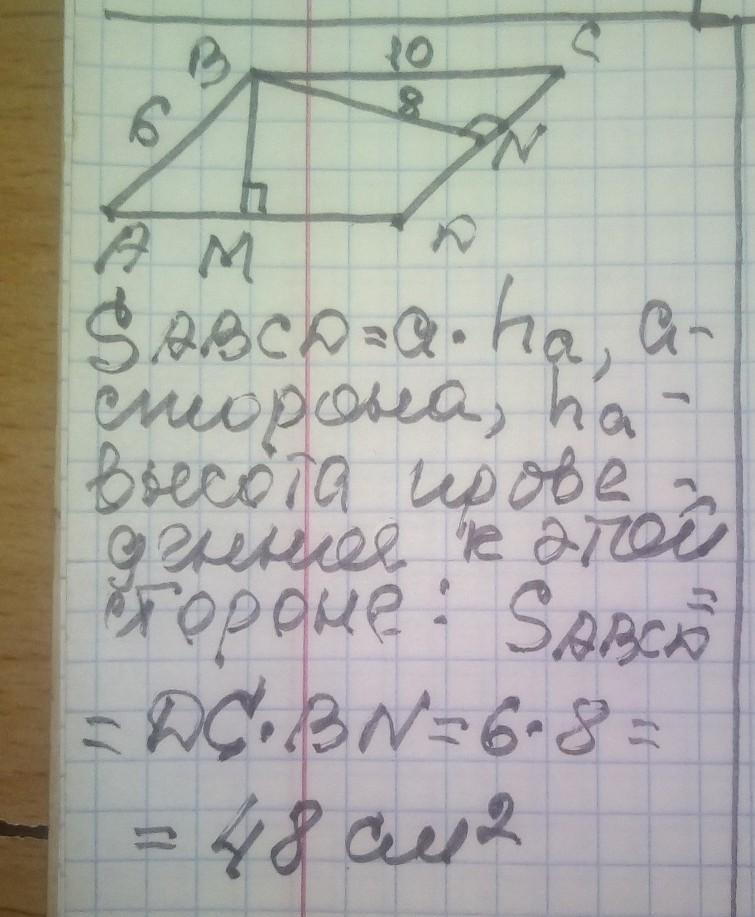 B 10 C
6 8
N
A M D
SABCD = a · ha, a -
сторона, ha -
высота прове -
денная к этой
стороне: SABCD =
= DC · BN = 6 · 8 =
= 48 см²